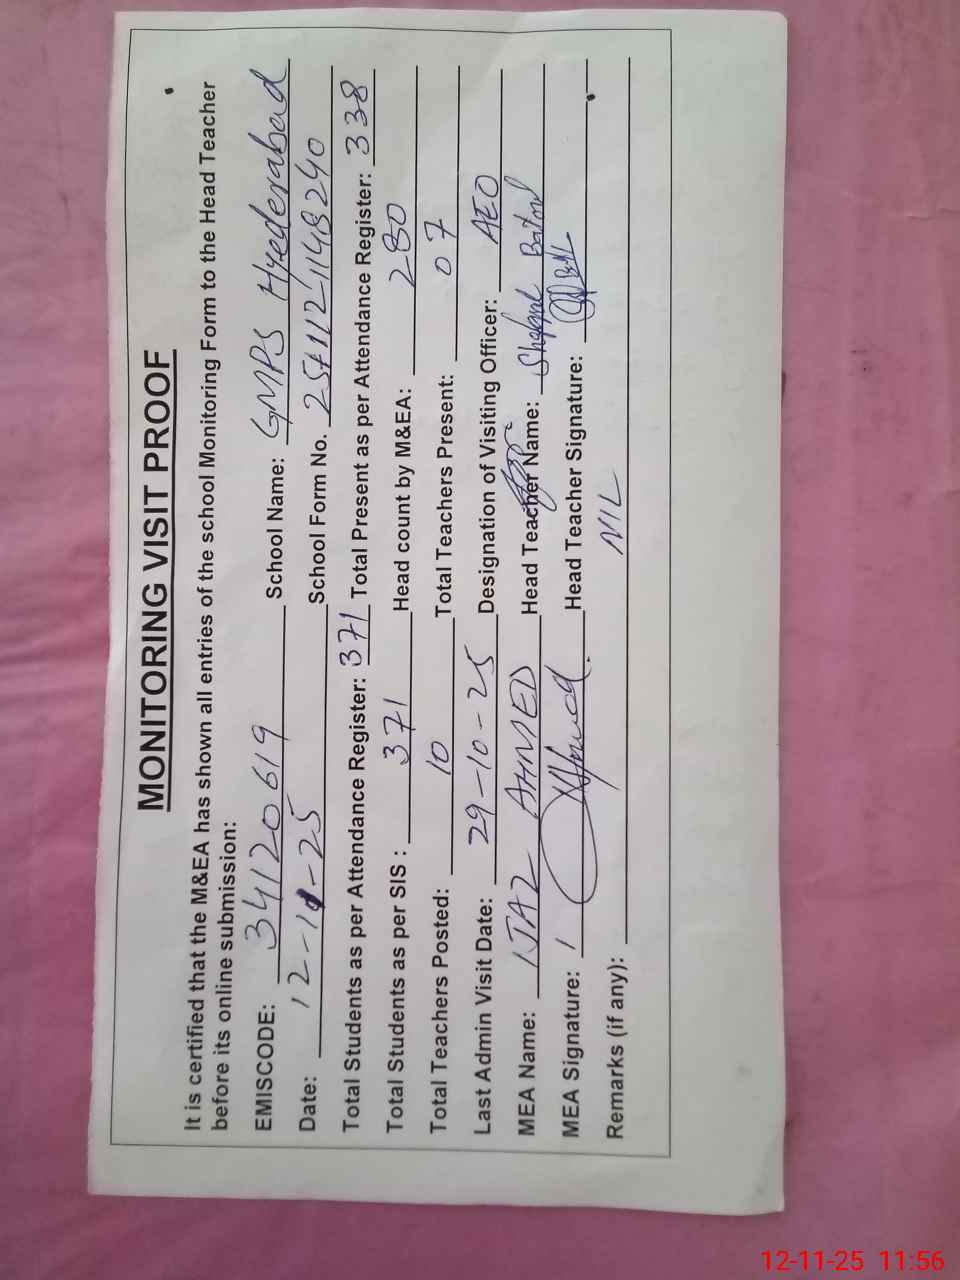 MONITORING VISIT PROOF
It is certified that the M&EA has shown all entries of the school Monitoring Form to the Head Teacher
before its online submission:
EMISCODE: 34120619 School Name: GMPS Hyederabad
Date: 12-11-25 School Form No.
Total Students as per Attendance Register: 371 Total Present as per Attendance Register: 338
Total Students as per SIS : 371 Head count by M&EA: 280
Total Teachers Posted: 10 Total Teachers Present: 07
Last Admin Visit Date: 29-10-25 Designation of Visiting Officer: AEO
MEA Name: IJAZ AHMED Head Teacher Name:
MEA Signature: Head Teacher Signature:
Remarks (if any): NIL
12-11-25 11:56